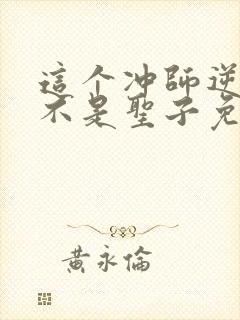 這个冲師逆
不是聖子免
黃永倫